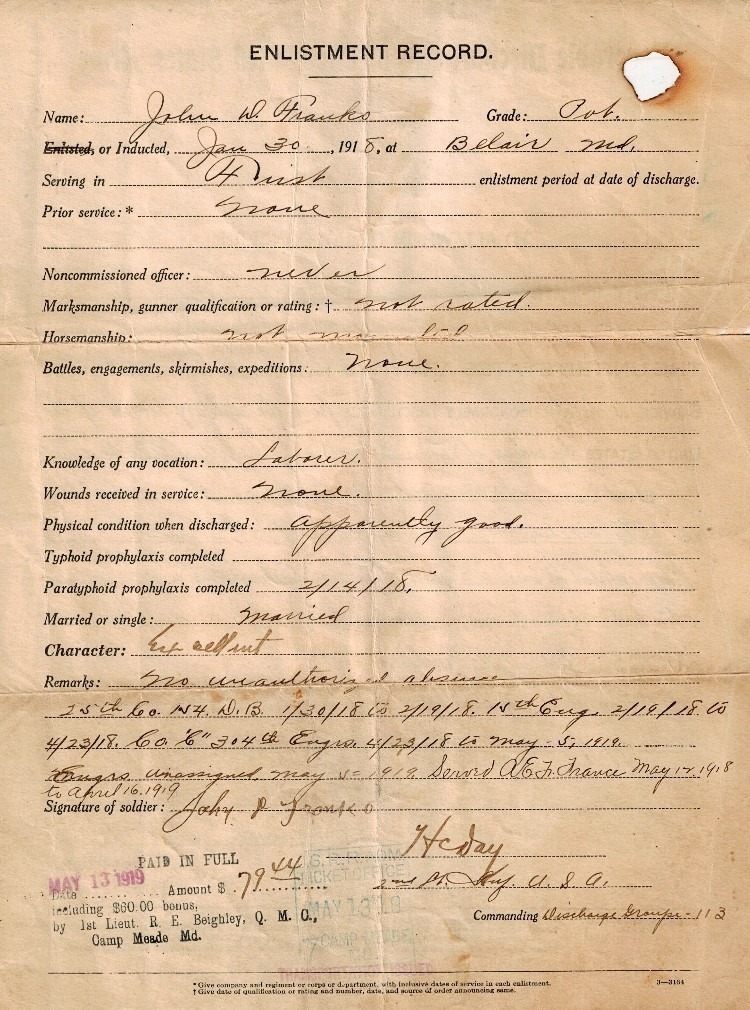 ENLISTMENT RECORD.
Name: John W. Franks Grade: Pvt.
Enlisted, or Inducted, Jan 30, 1918, at Belair Md.
Serving in First enlistment period at date of discharge.
Prior service: * None
Noncommissioned officer: never
Marksmanship, gunner qualification or rating: † not rated.
Horsemanship: not mounted
Battles, engagements, skirmishes, expeditions: None.
Knowledge of any vocation: Laborer.
Wounds received in service: None.
Physical condition when discharged: apparently good.
Typhoid prophylaxis completed
Paratyphoid prophylaxis completed 2/14/18.
Married or single: Married
Character: Excellent
Remarks: No unauthorized absence
25th Co. 154. D.B. 1/30/18 to 2/19/18. 15th Eng. 2/19/18 to
4/23/18. Co. "C" 304th Engrs. 4/23/18 to May 5, 1919.
Engrs unassigned May 5 1919 Served A.E.F. France May 12, 1918
to April 16, 1919
Signature of soldier: John Franks
H C Day
2nd Lt. Inf. U.S.A.
Commanding Discharge Group - 113
PAID IN FULL
MAY 13 1919
Date Amount $ 79 44
including $60.00 bonus,
by 1st Lieut. R. E. Beighley, Q. M. C.,
Camp Meade Md.
TICKET OFFICE
MAY 13 19
CAMP MEADE
* Give company and regiment or corps or department, with inclusive dates of service in each enlistment.
† Give date of qualification or rating and number, date, and source of order announcing same.
3—3164